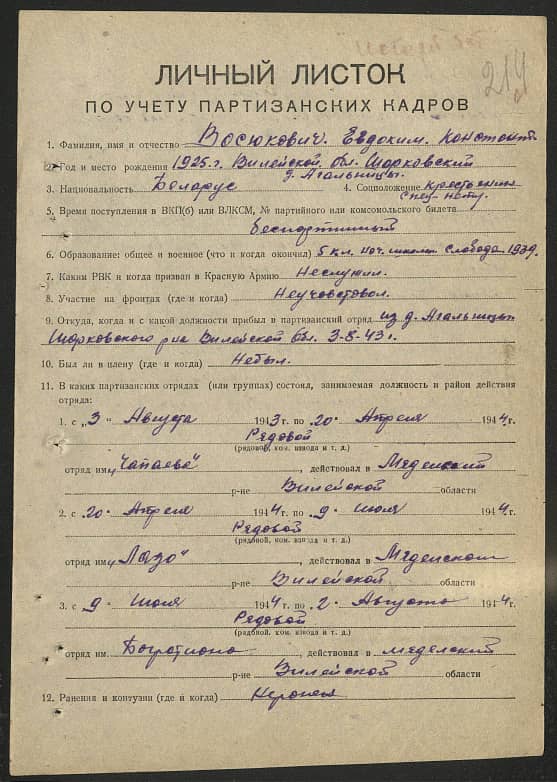 214
ЛИЧНЫЙ ЛИСТОК
ПО УЧЕТУ ПАРТИЗАНСКИХ КАДРОВ
1. Фамилия, имя и отчество Васюкович. Евдоким. Констант.
2. Год и место рождения 1925 г. Вилейской обл. Шарковский
д. Агальницы.
3. Национальность Беларус 4. Соцположение Крестьянин
Спец-нету.
5. Время поступления в ВКП(б) или ВЛКСМ, № партийного или комсомольского билета
беспартийный
6. Образование: общее и военное (что и когда окончил) 5 кл. нач. школы Слобода 1939.
7. Каким РВК и когда призван в Красную Армию Неслужил.
8. Участие на фронтах (где и когда) Неучавствовал.
9. Откуда, когда и с какой должности прибыл в партизанский отряд из д. Агальницы
Шарковского р-на Вилейской обл. 3-8-43 г.
10. Был ли в плену (где и когда) Небыл.
11. В каких партизанских отрядах (или группах) состоял, занимаемая должность и район действия
отряда:
1. с „3" Августа 1943 г. по 20. Апреля 1944 г.
Рядовой
(рядовой, ком. взвода и т. д.)
отряд им. „Чапаева" , действовал в Мяделский
р-не Вилейской области
2. с 20. Апреля 1944 г. по 9 июля 1944 г.
Рядовой
(рядовой, ком. взвода и т. д.)
отряд им. „Лазо" , действовал в Мядельском
р-не Вилейской области
3. с 9 Июля 1944 г. по 2. Августа 1944 г.
Рядовой
(рядовой, ком. взвода и т. д.)
отряд им. Богратиона , действовал в Мяделский
р-не Вилейской области
12. Ранения и контузии (где и когда) Неранен